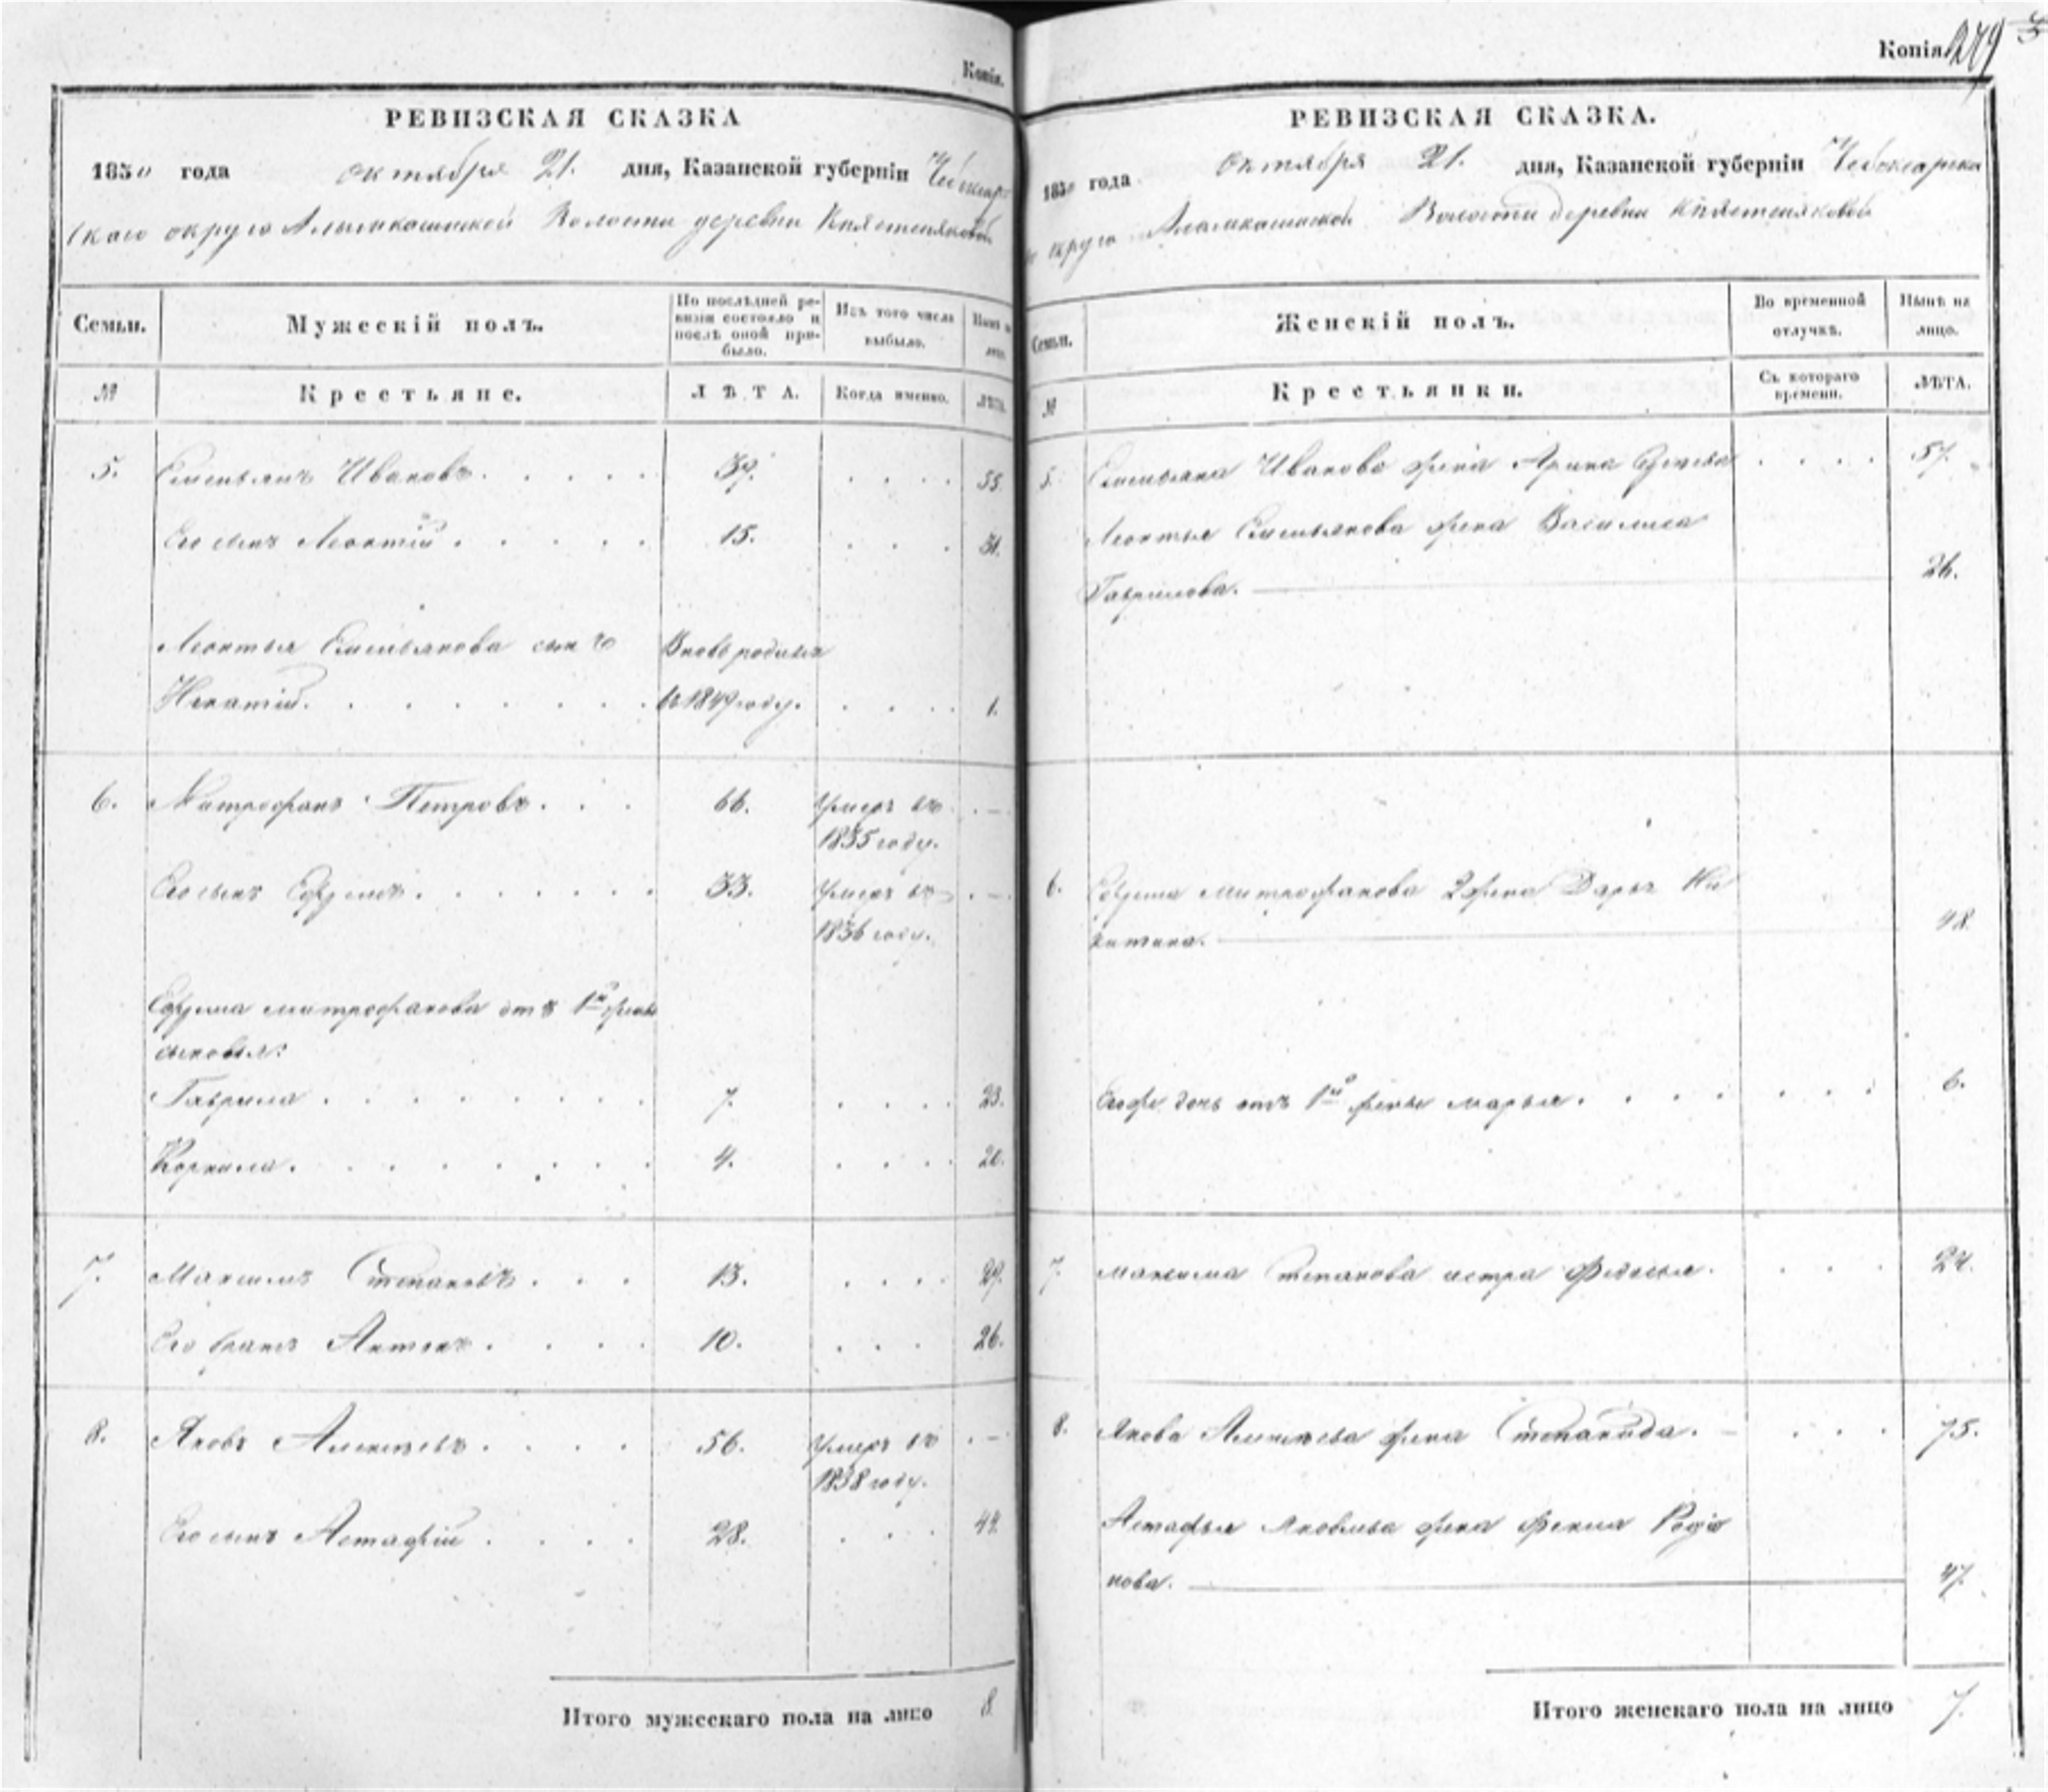 Копія.
РЕВИЗСКАЯ СКАЗКА
1850 года октября 21. дня, Казанской губерніи Чебоксар
скаго округа Алымкашинской Волости деревни
Семьи. Мужескій полъ. По послѣдней ревизіи состояло и послѣ оной прибыло. Изъ того числа выбыло. Нынѣ на лицо.
№ Крестьяне. ЛѢТА. Когда именно. ЛѢТА.
5. Емельянъ Ивановъ. 39. 55.
Его сынъ Леонтій. 15. 31.
Леонтья Емельянова сынъ Вновь рожденъ
Игнатій. въ 1849 году. 1.
6. Митрофанъ Петровъ. 66. Умеръ въ —
1835 году.
Его сынъ Ефремъ. 33. Умеръ въ —
1836 году.
Ефрема Митрофанова отъ 1й жены
сыновья:
Гаврила 7. 23.
Корнила. 4. 20.
7. Максимъ Степановъ. 13. 29.
Его братъ Антонъ. 10. 26.
8. Яковъ Алексѣевъ. 56. Умеръ въ —
1838 году.
Его сынъ Астафій 28. 44.
Итого мужескаго пола на лицо 8
Копія. 279
РЕВИЗСКАЯ СКАЗКА.
1850 года Октября 21. дня, Казанской губерніи Чебоксарска
го округа Алымкашинской Волости деревни
Семьи. Женскій полъ. Во временной отлучкѣ. Нынѣ на лицо.
№ Крестьянки. Съ котораго времени. ЛѢТА.
5. Емельяна Иванова жена Арина 57.
Леонтья Емельянова жена Василиса
Гаврилова. 26.
6. Ефрема Митрофанова 2 жена Дарья Ни
китина. 48
дочь отъ 1й жены Марья. 6.
7. Максима Степанова сестра Федосья. 24.
8. Якова Алексѣева жена Степанида. 75.
Астафья Яковлева жена Фекла Родіо
нова. 47.
Итого женскаго пола на лицо 7.